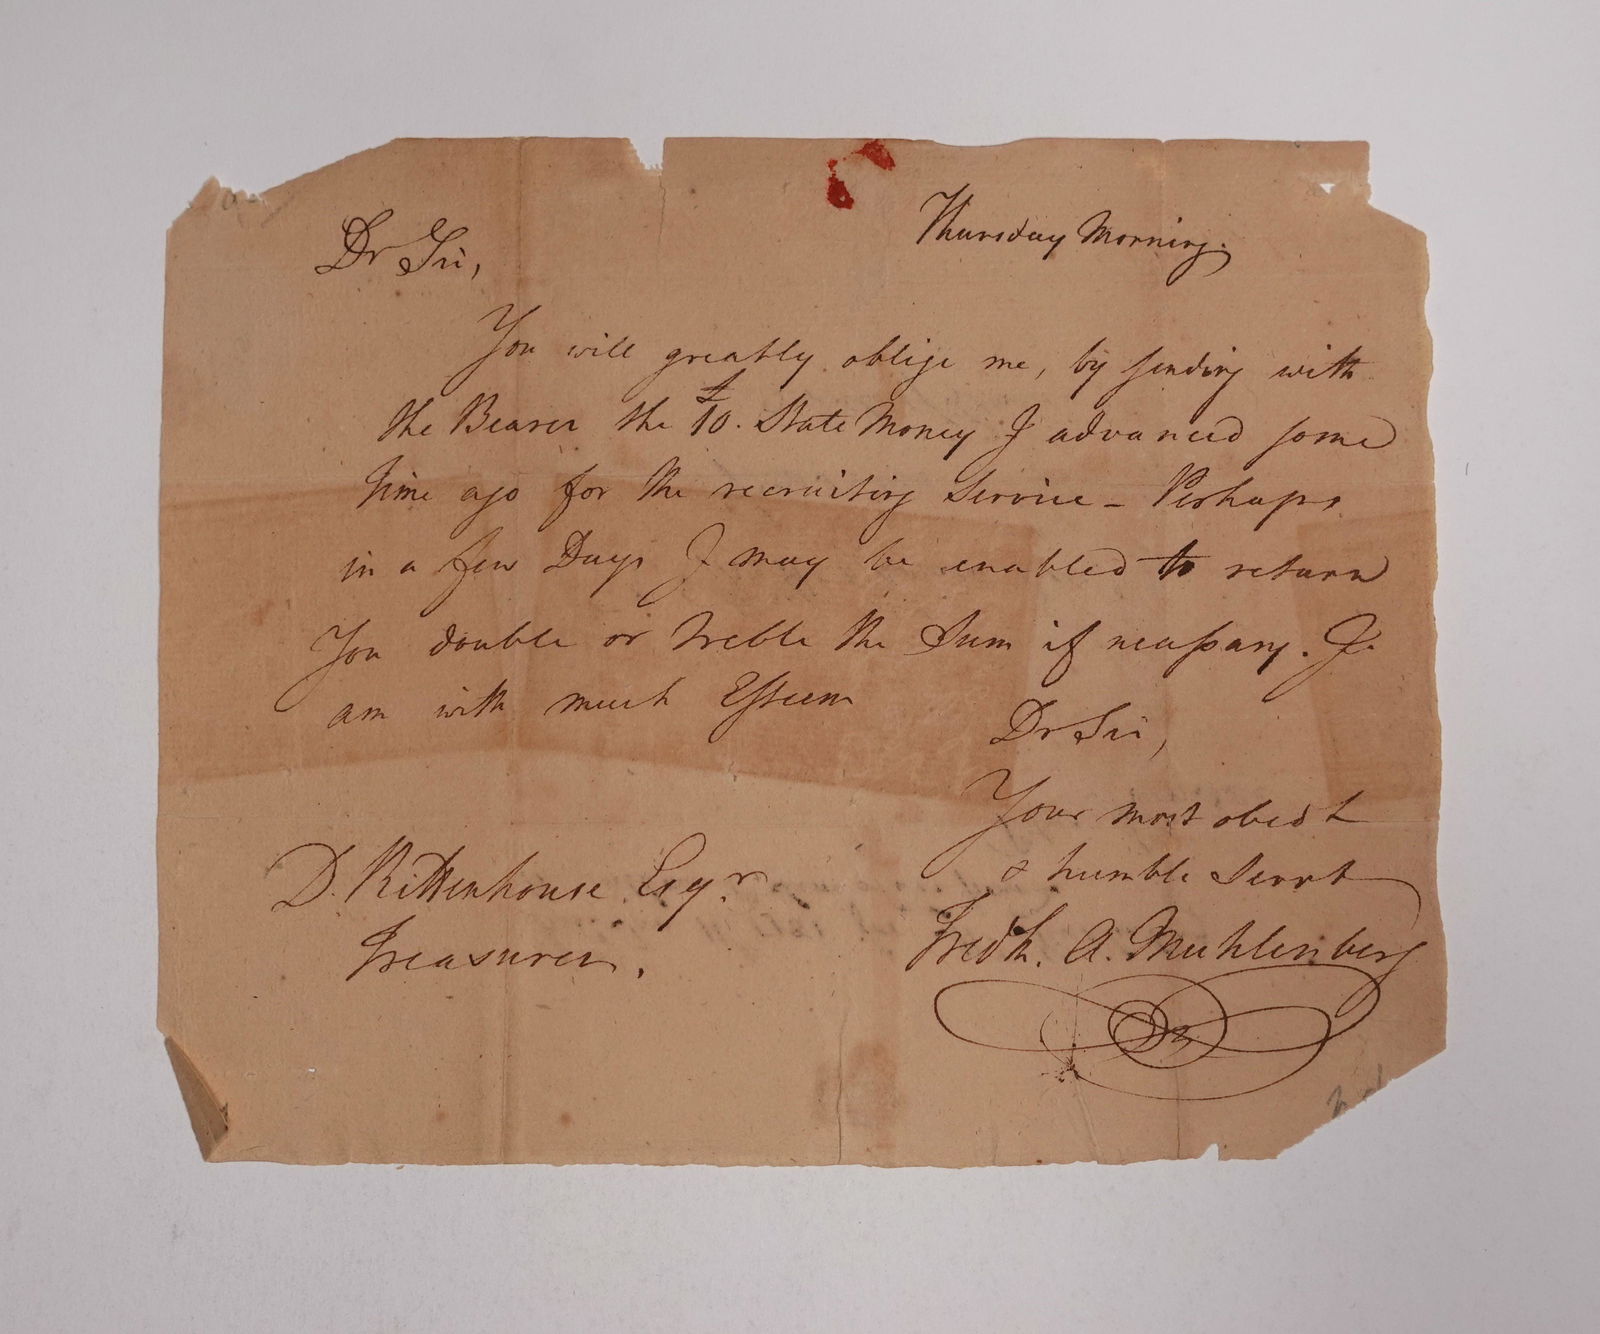 Thursday Morning.
Dr Sir,
You will greatly oblige me, by sending with
the Bearer the £10. State Money I advanced some
time ago for the recruiting Service – Perhaps
in a few Days I may be enabled to return
You double or treble the Sum if necessary. I
am with much Esteem
Dr Sir,
Your most obedt
& humble Servt
Fredk. A. Muhlenberg
D. Rittenhouse Esqr.
Treasurer.